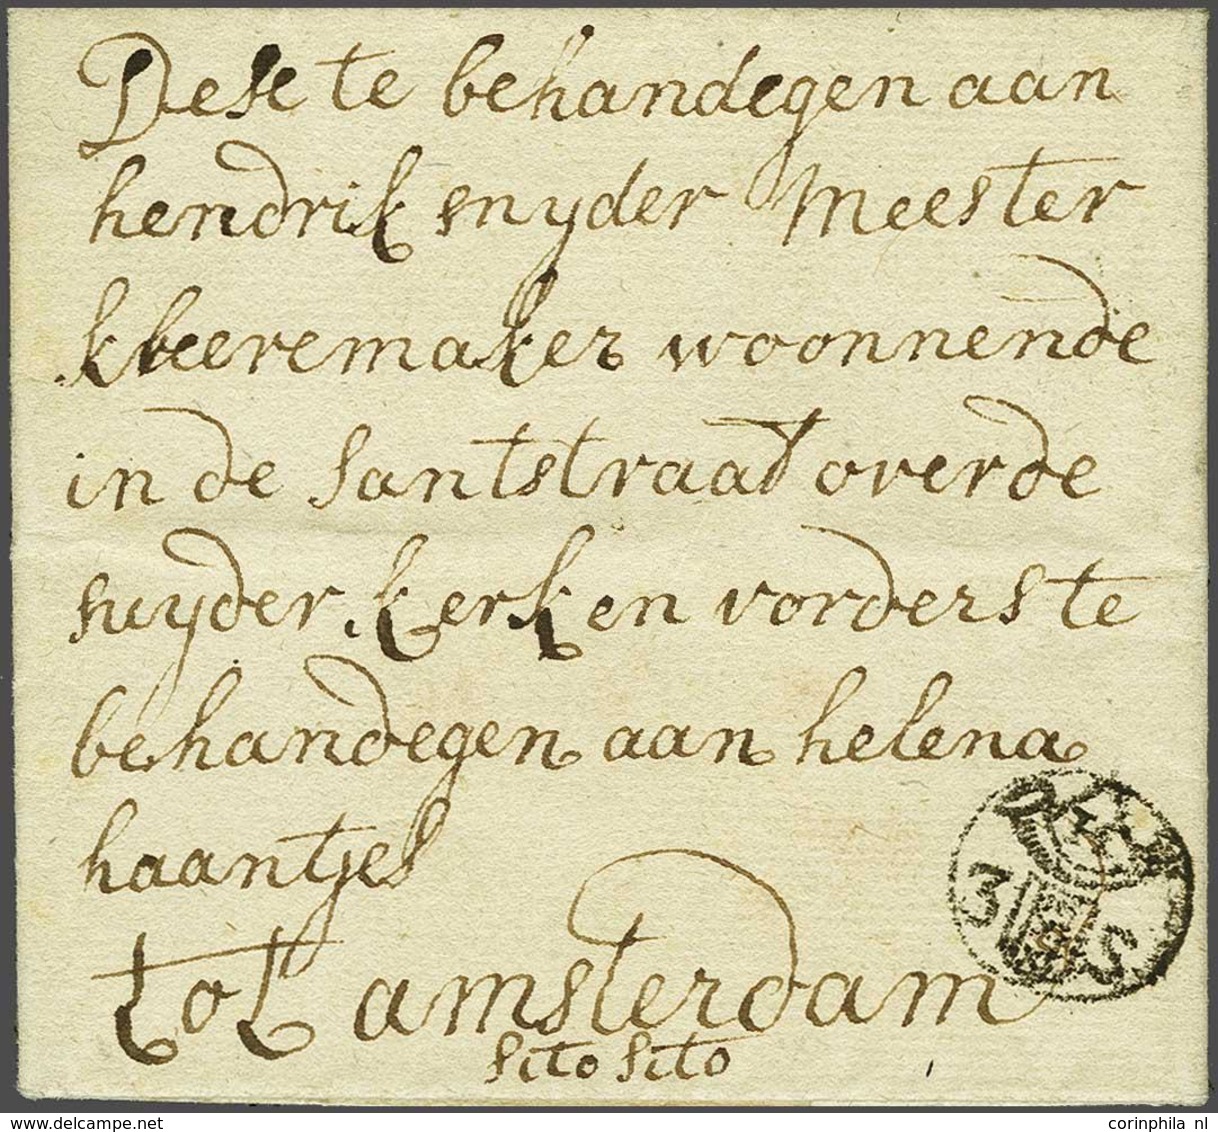 Dese te behandegen aan
hendrik snyder Meester
kleeremaker woonnende
in de santstraat over de
suyder kerk en vorders te
behandegen aan helena
haantjes
tot amsterdam
sito sito
3 S
corinphila nl